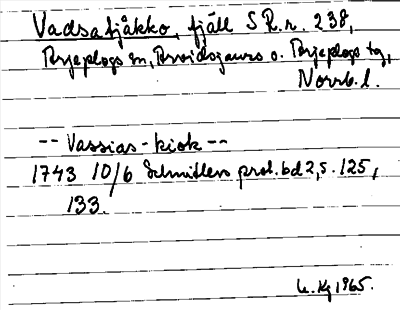 Vadsatjåkko, fjäll S R.r. 238,
Arjeplogs sn, Arvidsjaurs o. Arjeplogs tg,
Norrb. l.
-- Vassias-kiok --
1743 10/6 Schnitlers prot. bd 2, s. 125,
133.
Kg 1965.